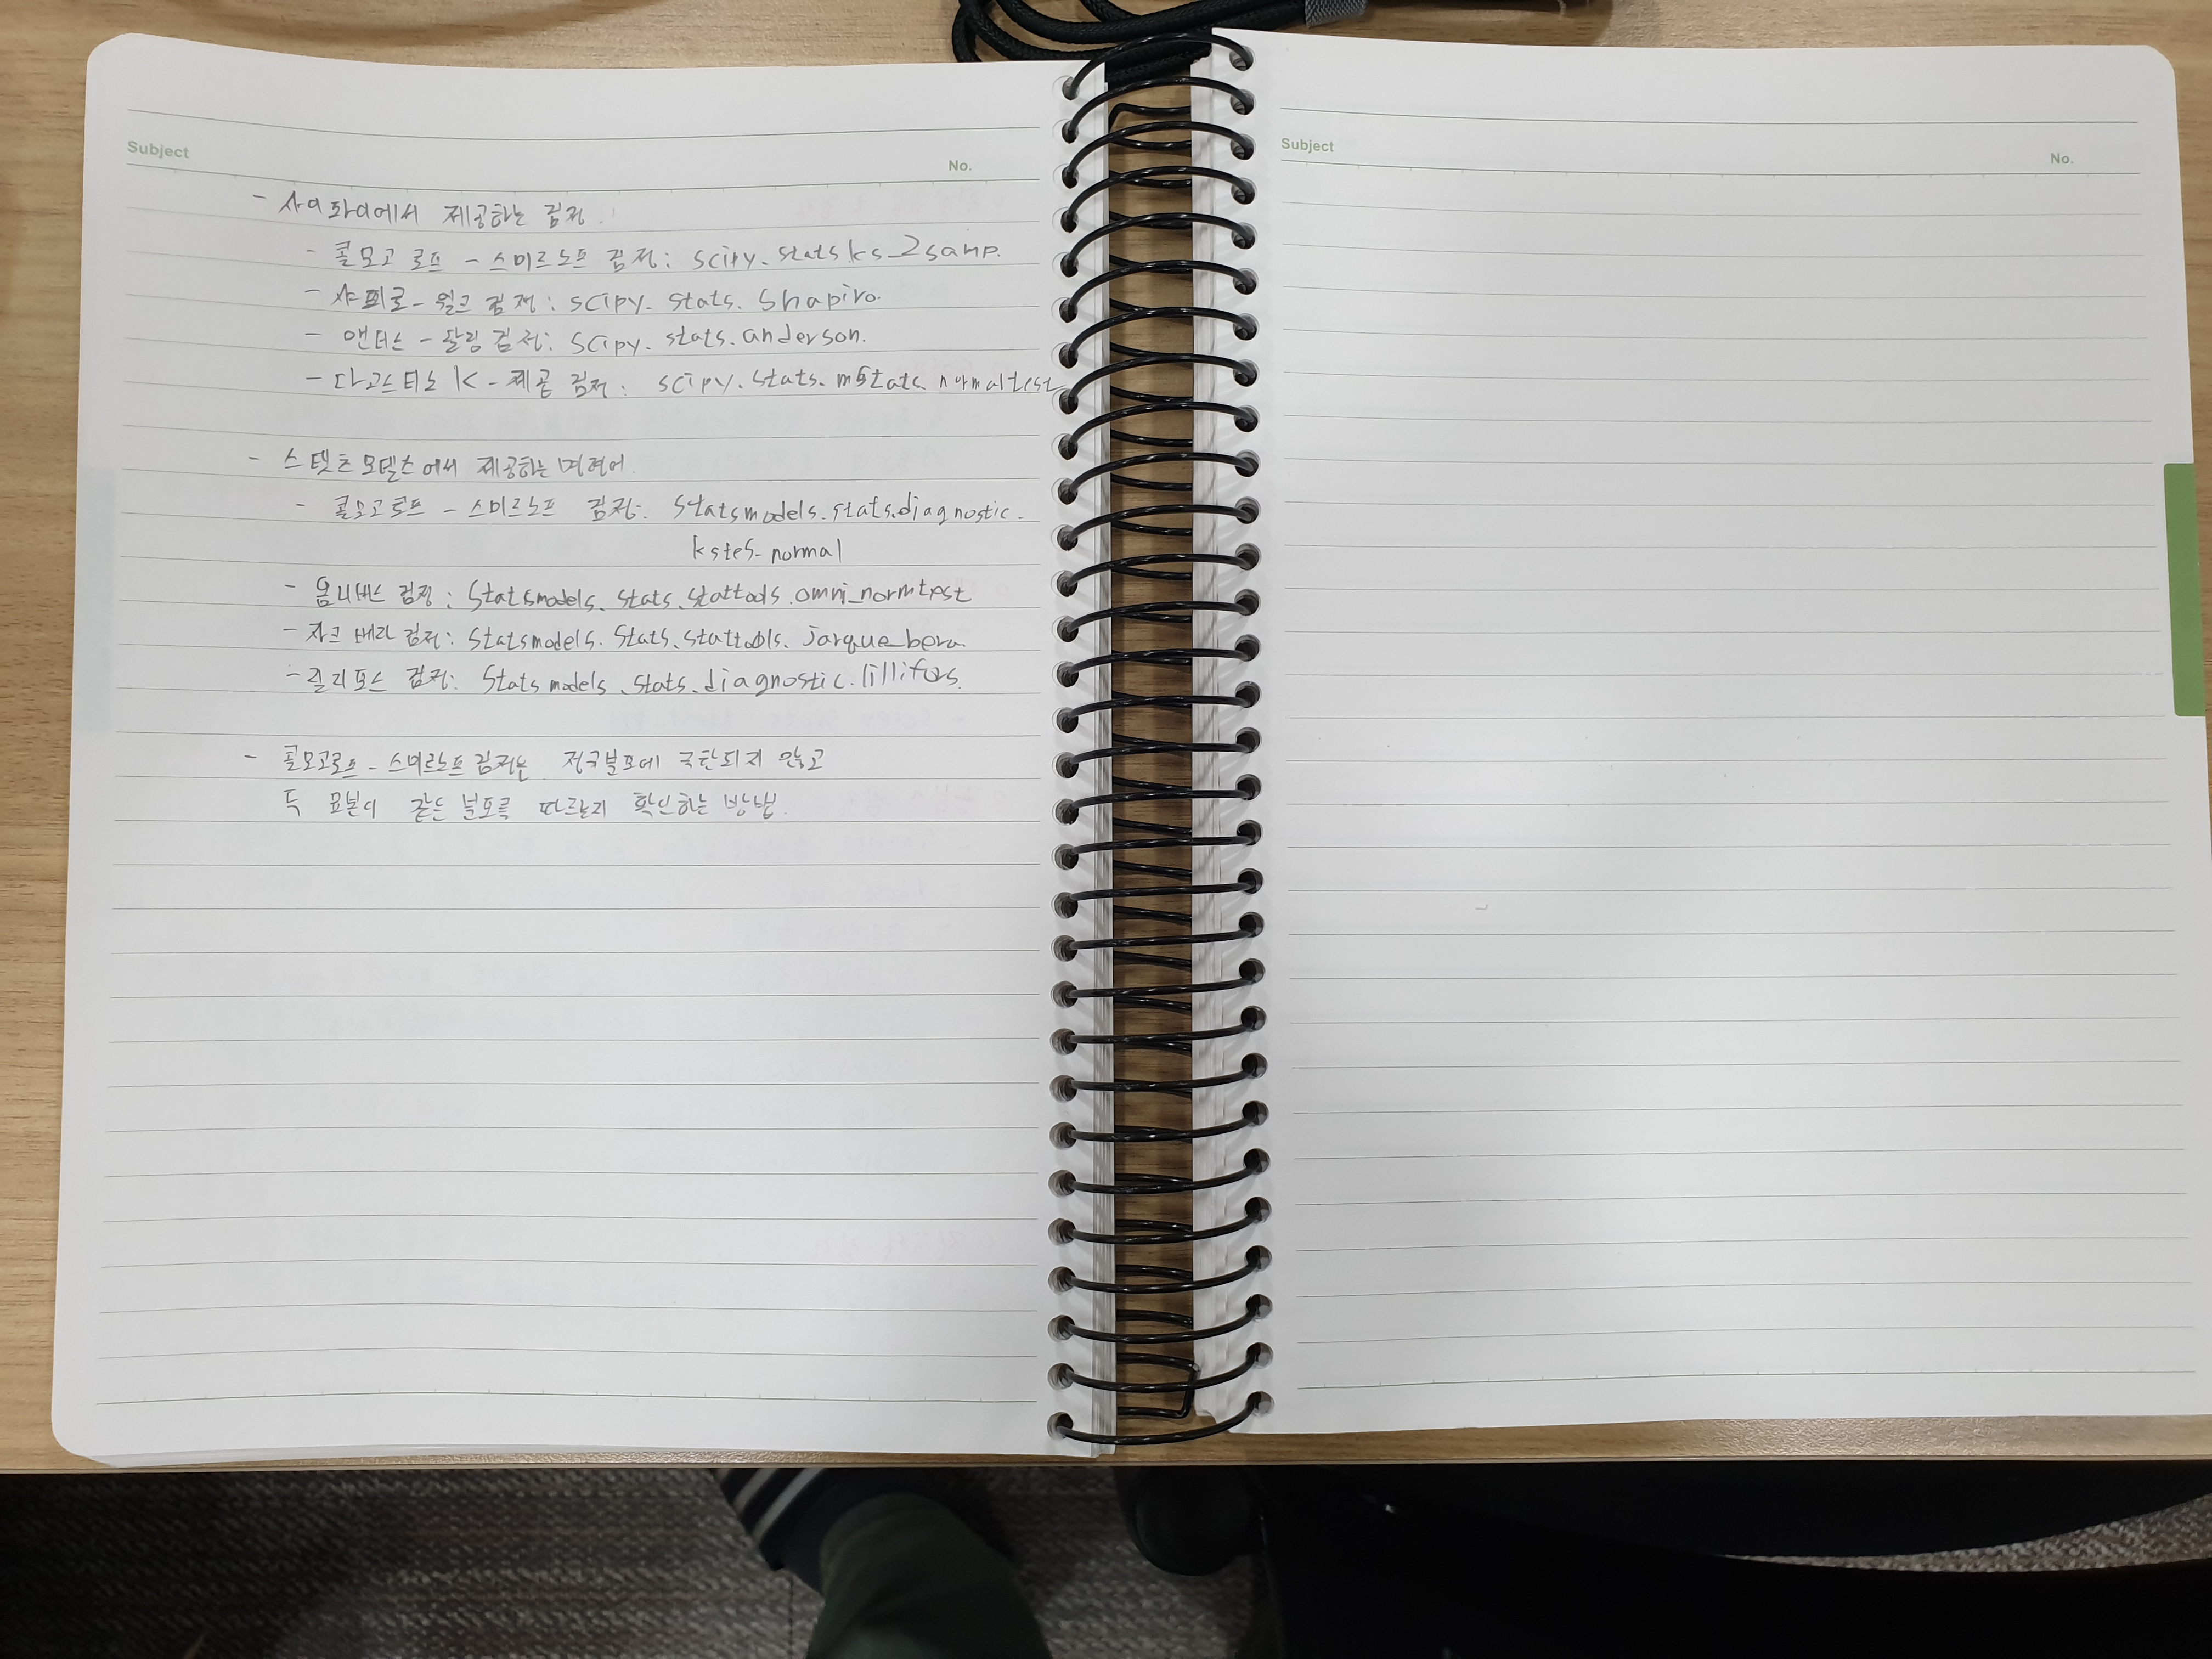 Subject
No.
- 사이파이에서 제공하는 검정.
- 콜모고로프 - 스미르노프 검정: scipy.stats ks_2samp.
- 샤피로 - 윌크 검정: scipy. stats. shapiro.
- 앤더스 - 달링 검정: scipy. stats. anderson.
- 다고스티노 K - 제곱 검정: scipy. stats. mstats. normaltest
- 스탯츠모델츠에서 제공하는 명령어
- 콜모고로프 - 스미르노프 검정: statsmodels.stats.diagnostic.
kstes_normal
- 옴니버스 검정: statsmodels. stats. stattools. omni_normtest
- 자크 베라 검정: statsmodels. stats. stattools. jarque_bera
- 릴리포스 검정: statsmodels. stats. diagnostic. lillifors.
- 콜모고로프 - 스미르노프 검정은 정규분포에 국한되지 않고
두 표본이 같은 분포를 따르는지 확인하는 방법.
Subject
No.